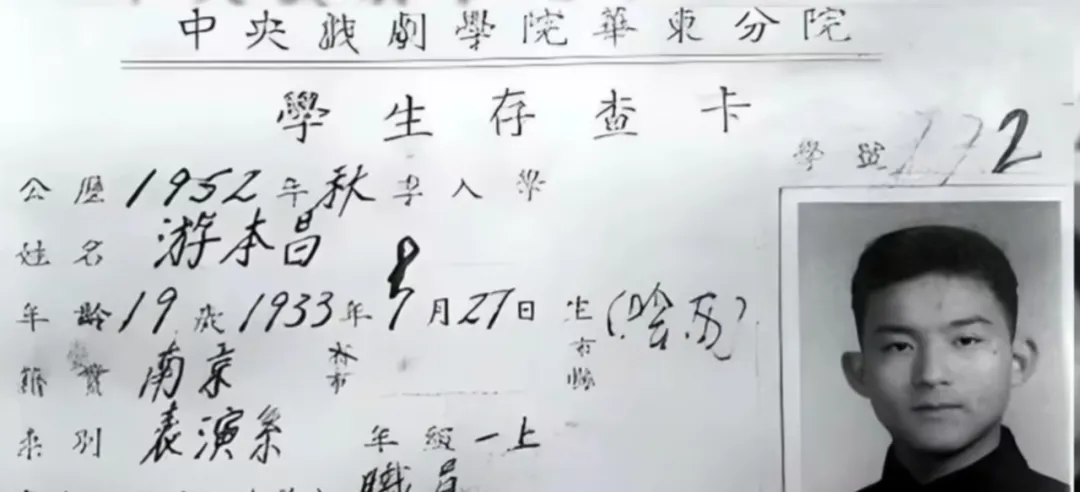 中央戏劇學院華東分院
學生存查卡
學號 172
公歷1952年秋季入學
姓名 游本昌
年齡19歲1933年8月27日生(陰历)
籍貫 南京 市 市縣
系別 表演系 年級 一上
職員